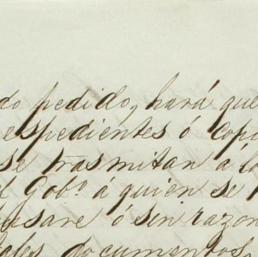 do pedido, hará que
espedientes ó copi
se trasmitan á la
l Gobº. á quien se
usare ó sin razon
ales documentos,